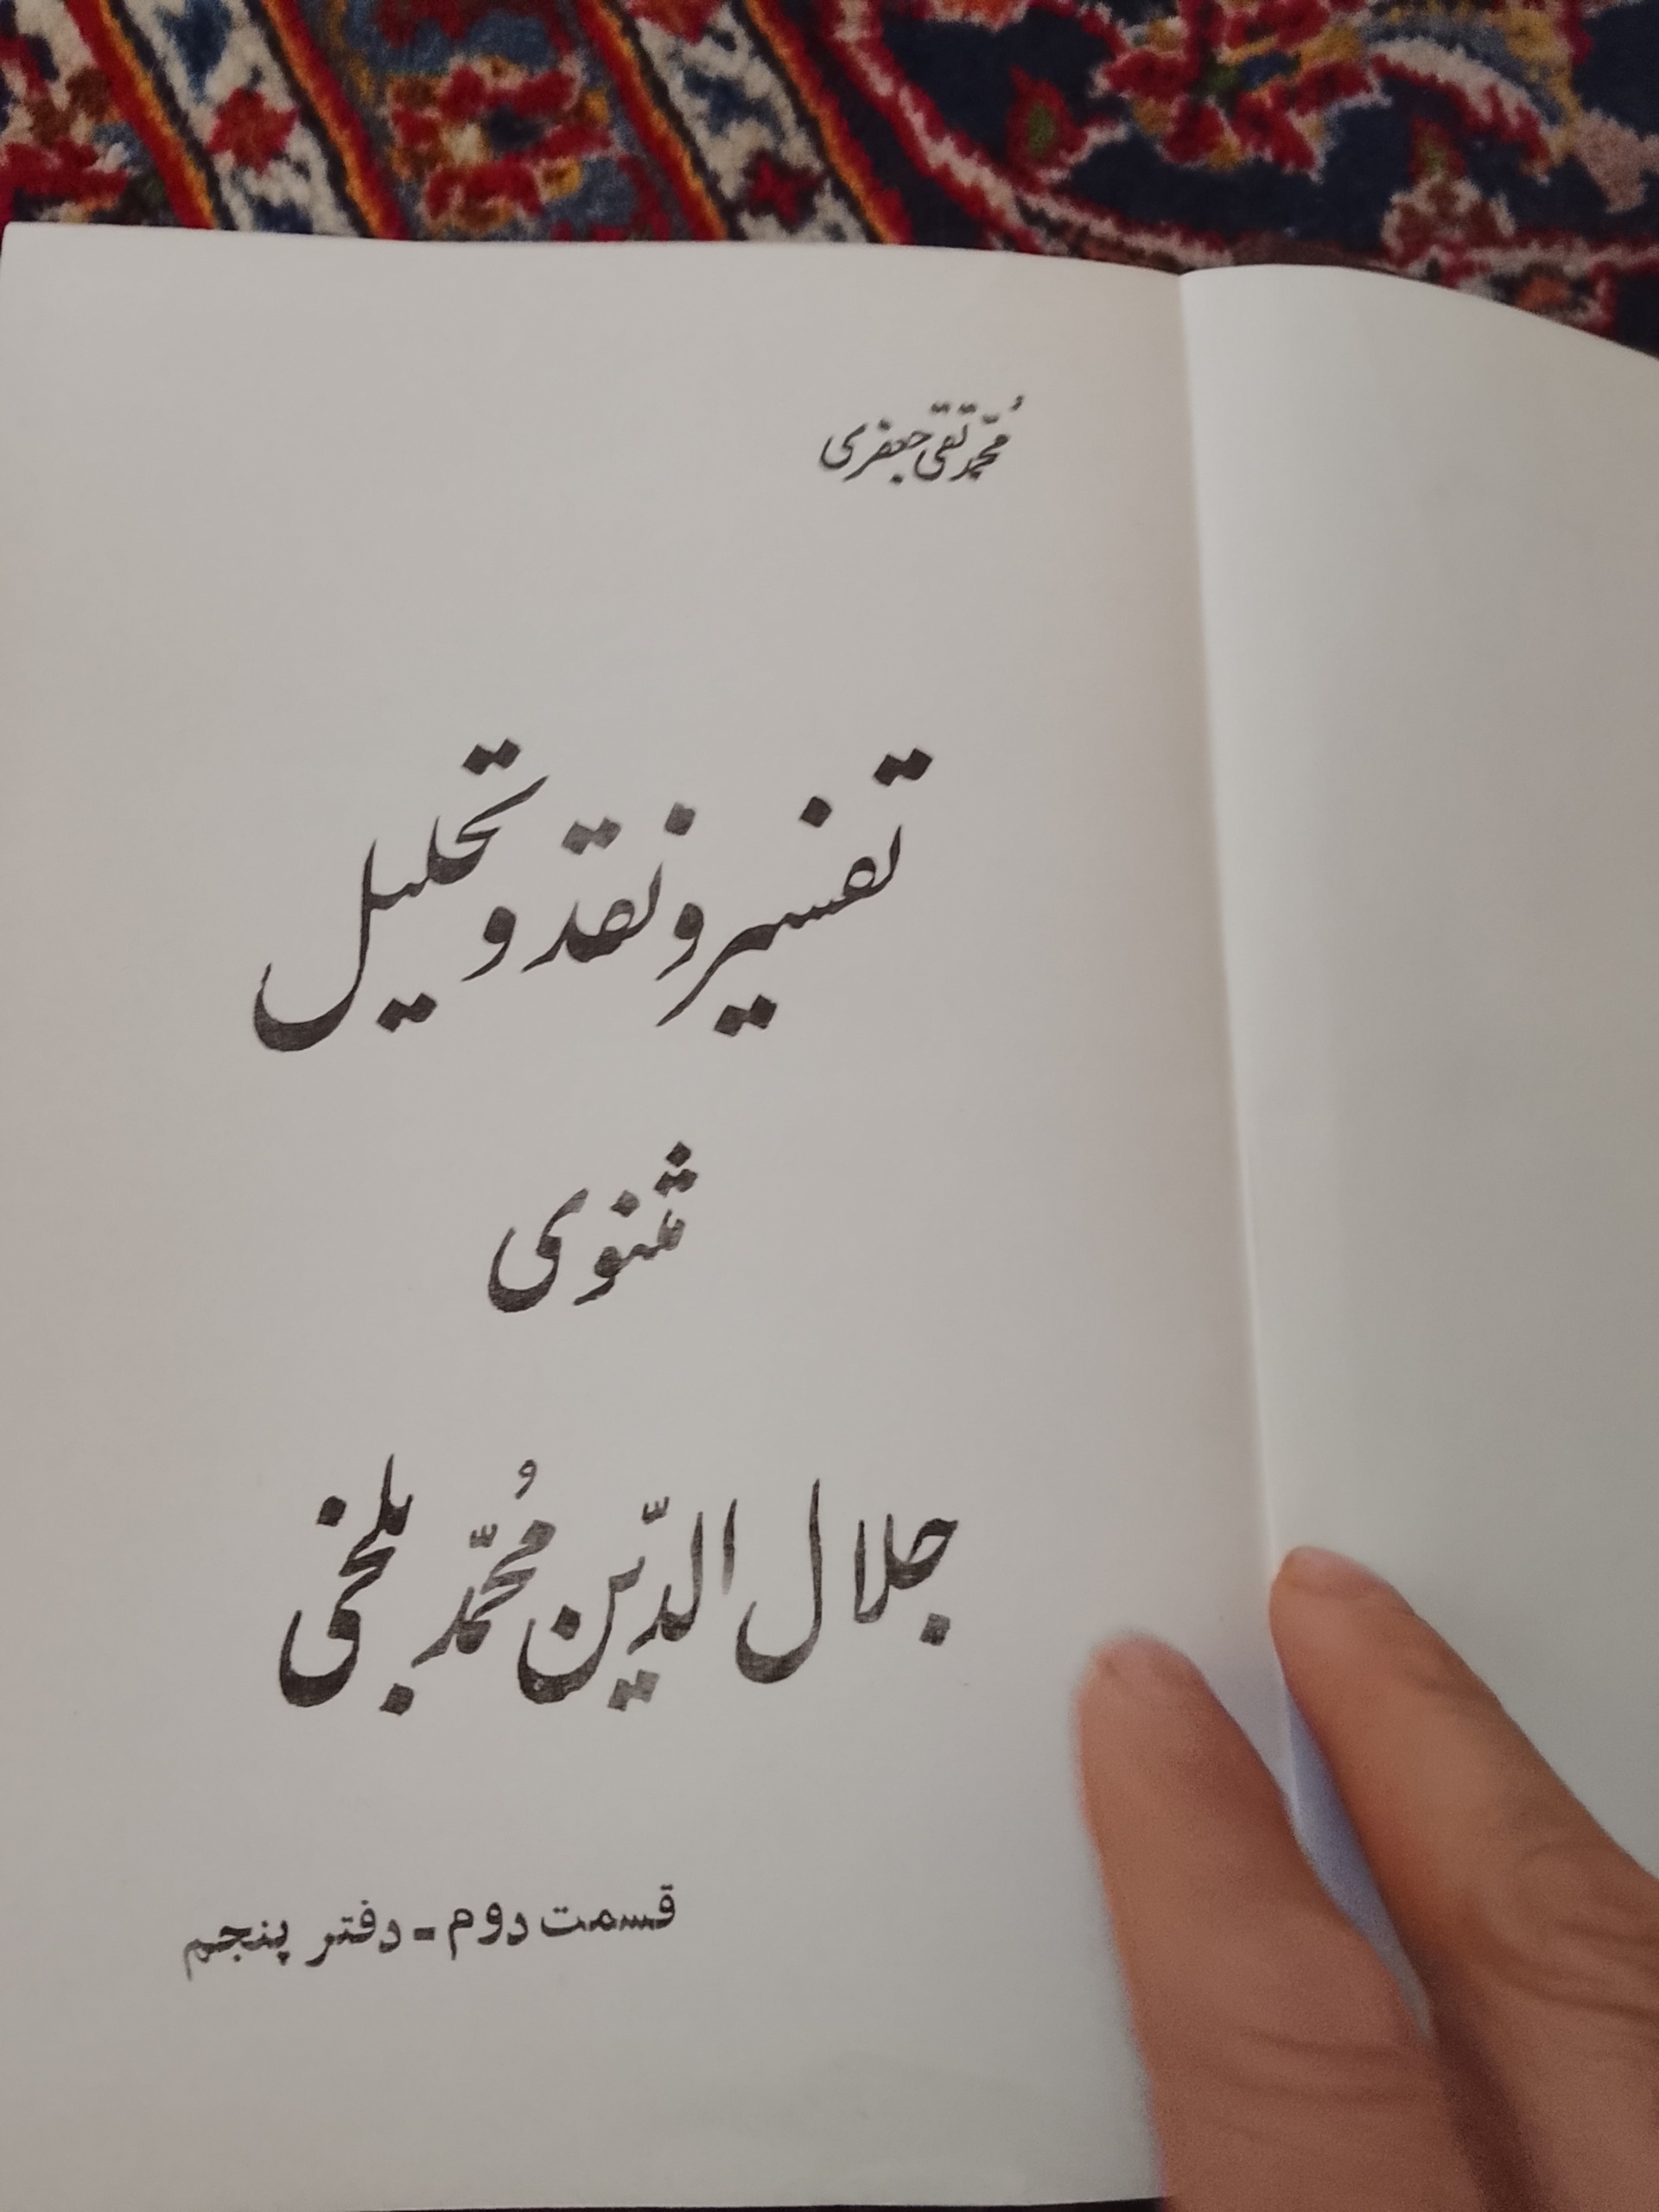 مُحمّد تقی جعفری
تفسیر و نقد و تحلیل
مثنوی
جلال الدّین مُحمّد بلخی
قسمت دوم - دفتر پنجم